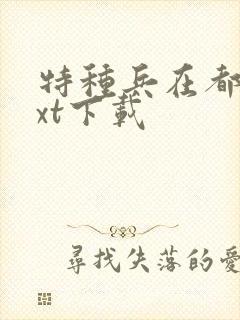 特種兵在都
xt下載
尋找失落的愛